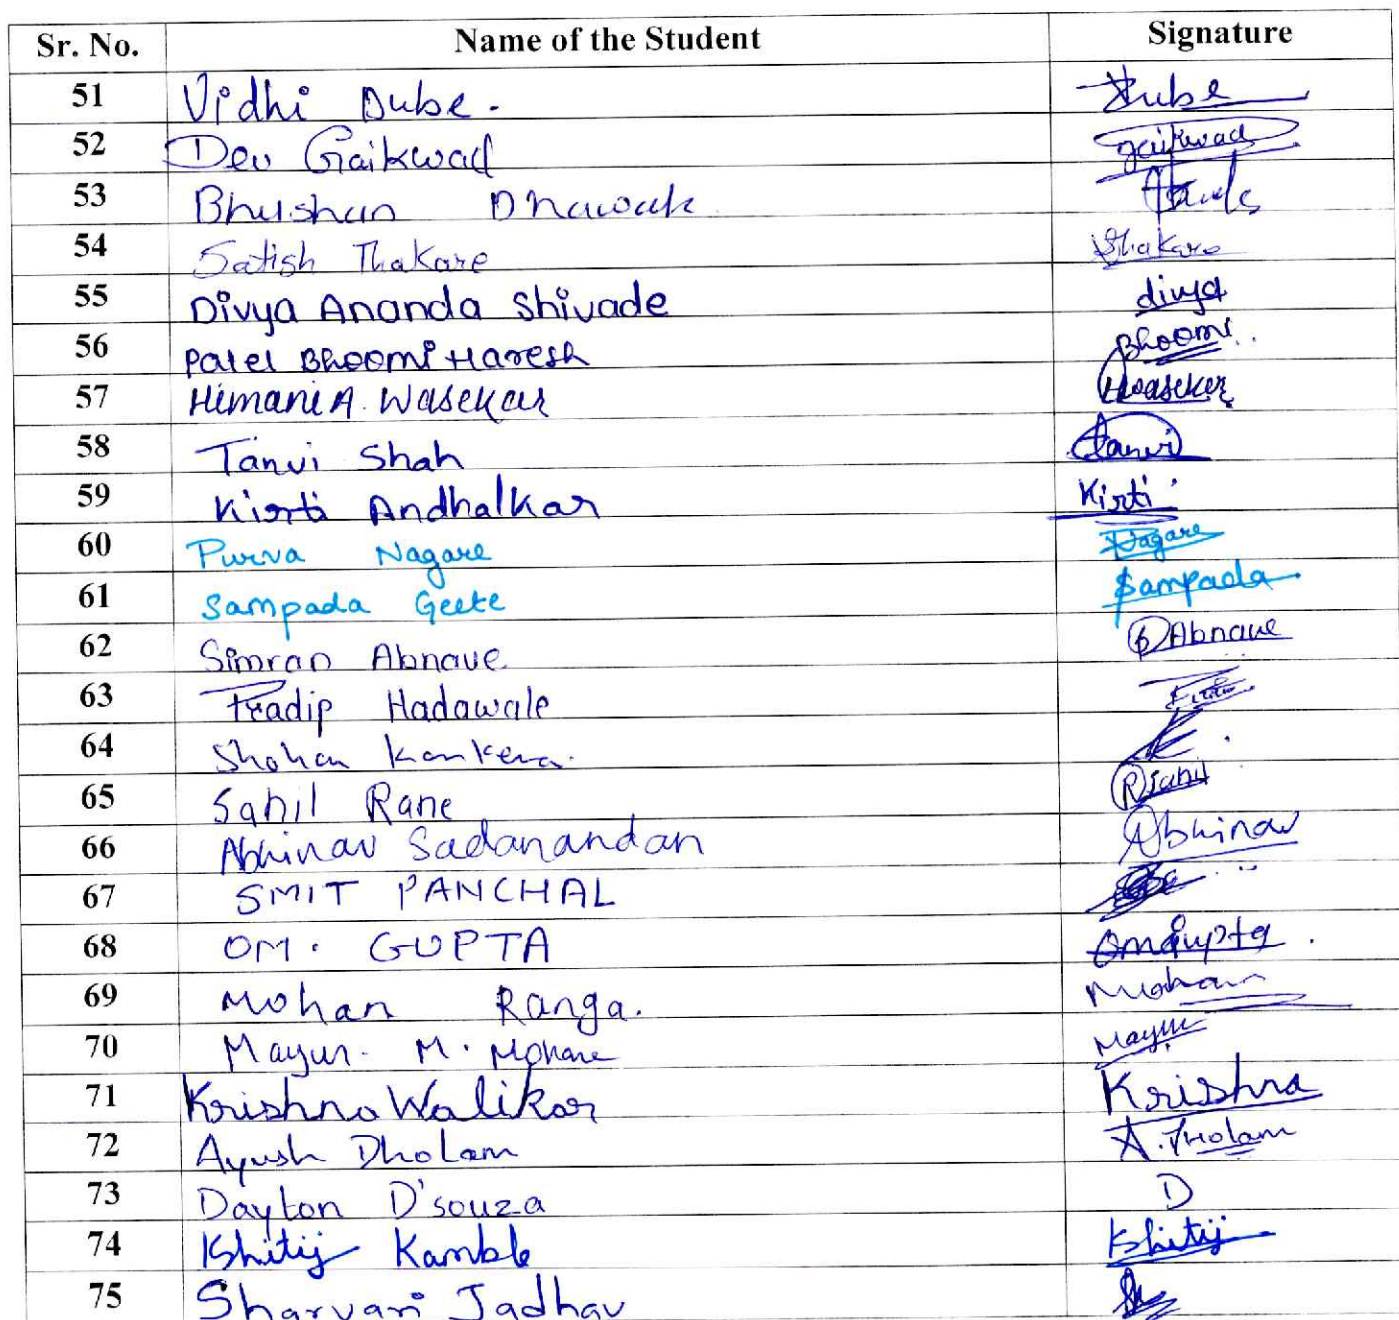 Sr. No. Name of the Student Signature
51 Vidhi Dube. Dube
52 Dev Gaikwad gaikwad
53 Bhushan Dhawade
54 Satish Thakare Thakare
55 Divya Ananda Shivade divya
56 Patel Bhoomi Haresh Bhoomi
57 Himani A. Wasekar HWasekar
58 Tanvi Shah Tanvi
59 Kirti Andhalkar Kirti
60 Purva Nagare Nagare
61 Sampada Geete Sampada
62 Simran Abnave. Abnave
63 Pradip Hadawale
64 Shohan
65 Sahil Rane R Sahil
66 Abhinav Sadanandan Abhinav
67 SMIT PANCHAL
68 OM. GUPTA Omgupta.
69 Mohan Ranga. Mohan
70 Mayur. M. Mohane Mayur
71 Krishna Walikar Krishna
72 Ayush Dholam A. Dholam
73 Dayton D'souza D
74 Kshitij Kamble Kshitij
75 Sharvari Jadhav